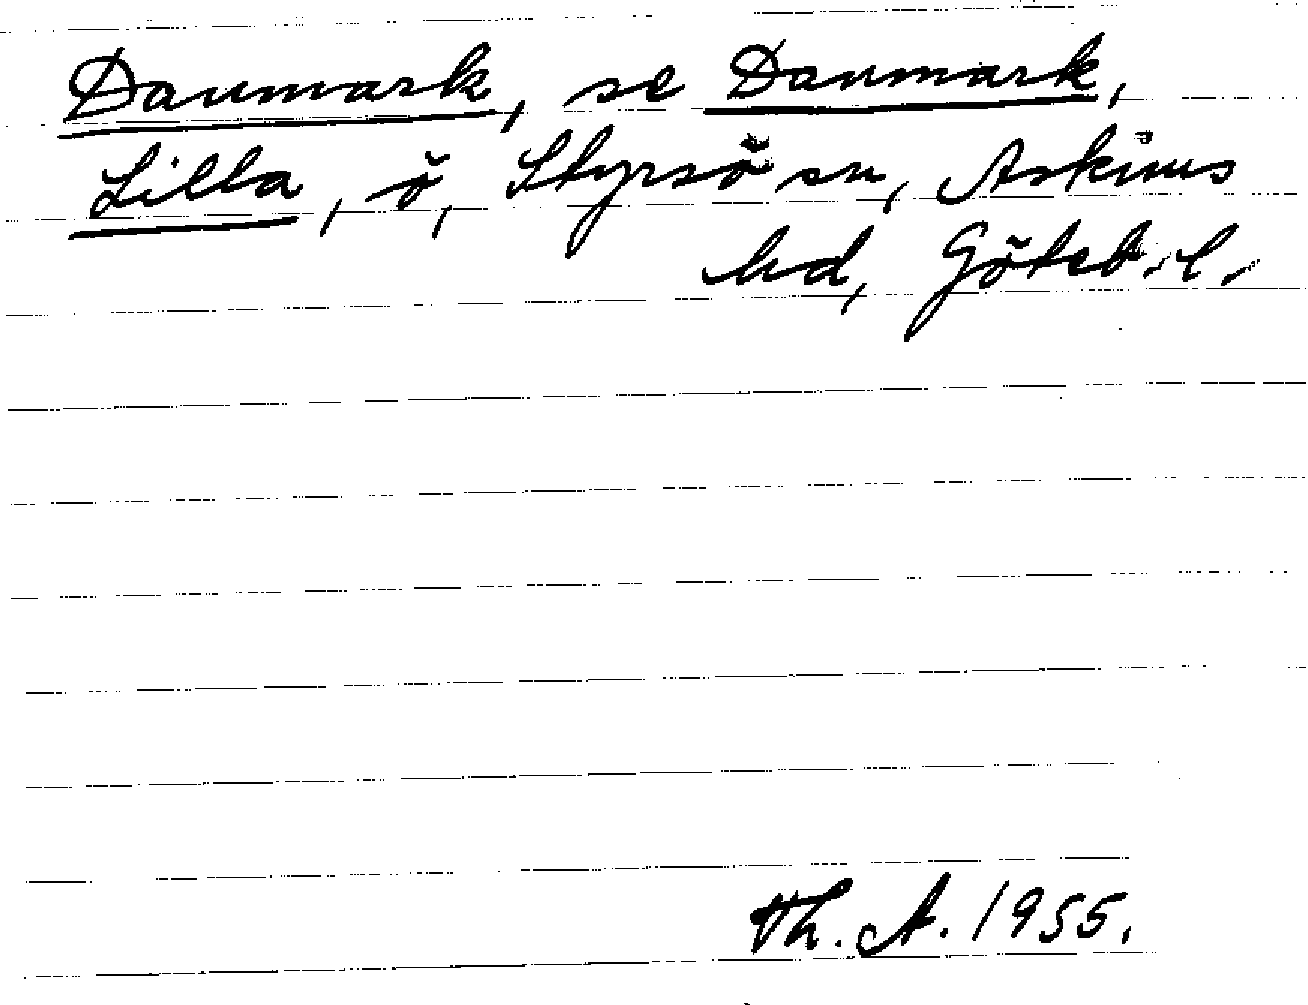 Danmark, se Danmark,
Lilla, ö, Styrsö sn, Askims
hd, Göteb. l.
Th. A. 1955.